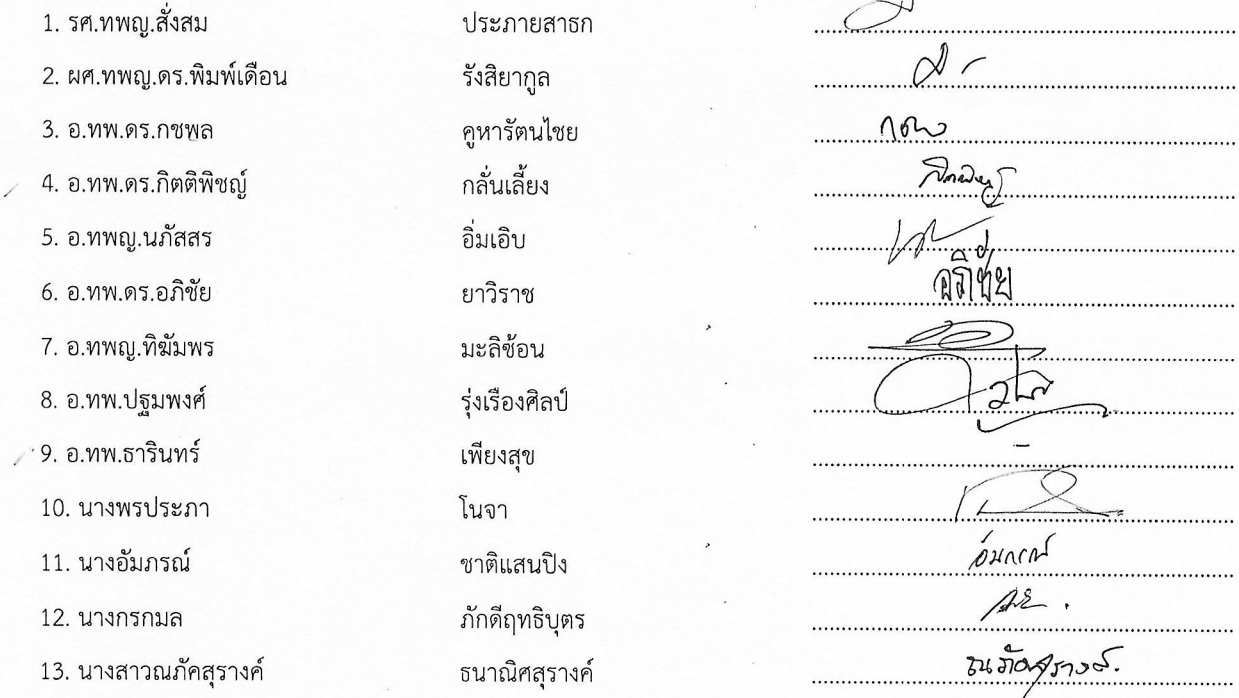 1. รศ.ทพญ.สั่งสม ประภายสาธก
2. ผศ.ทพญ.ดร.พิมพ์เดือน รังสิยากูล
3. อ.ทพ.ดร.กชพล คูหารัตนไชย
4. อ.ทพ.ดร.กิตติพิชญ์ กลั่นเลี้ยง
5. อ.ทพญ.นภัสสร อิ่มเอิบ
6. อ.ทพ.ดร.อภิชัย ยาวิราช อภิชัย
7. อ.ทพญ.ทิฆัมพร มะลิซ้อน
8. อ.ทพ.ปฐมพงศ์ รุ่งเรืองศิลป์
9. อ.ทพ.ธารินทร์ เพียงสุข -
10. นางพรประภา โนจา
11. นางอัมภรณ์ ชาติแสนปิง อัมภรณ์
12. นางกรกมล ภักดีฤทธิบุตร
13. นางสาวณภัคสุรางค์ ธนาณิศสุรางค์ ณภัคสุรางค์